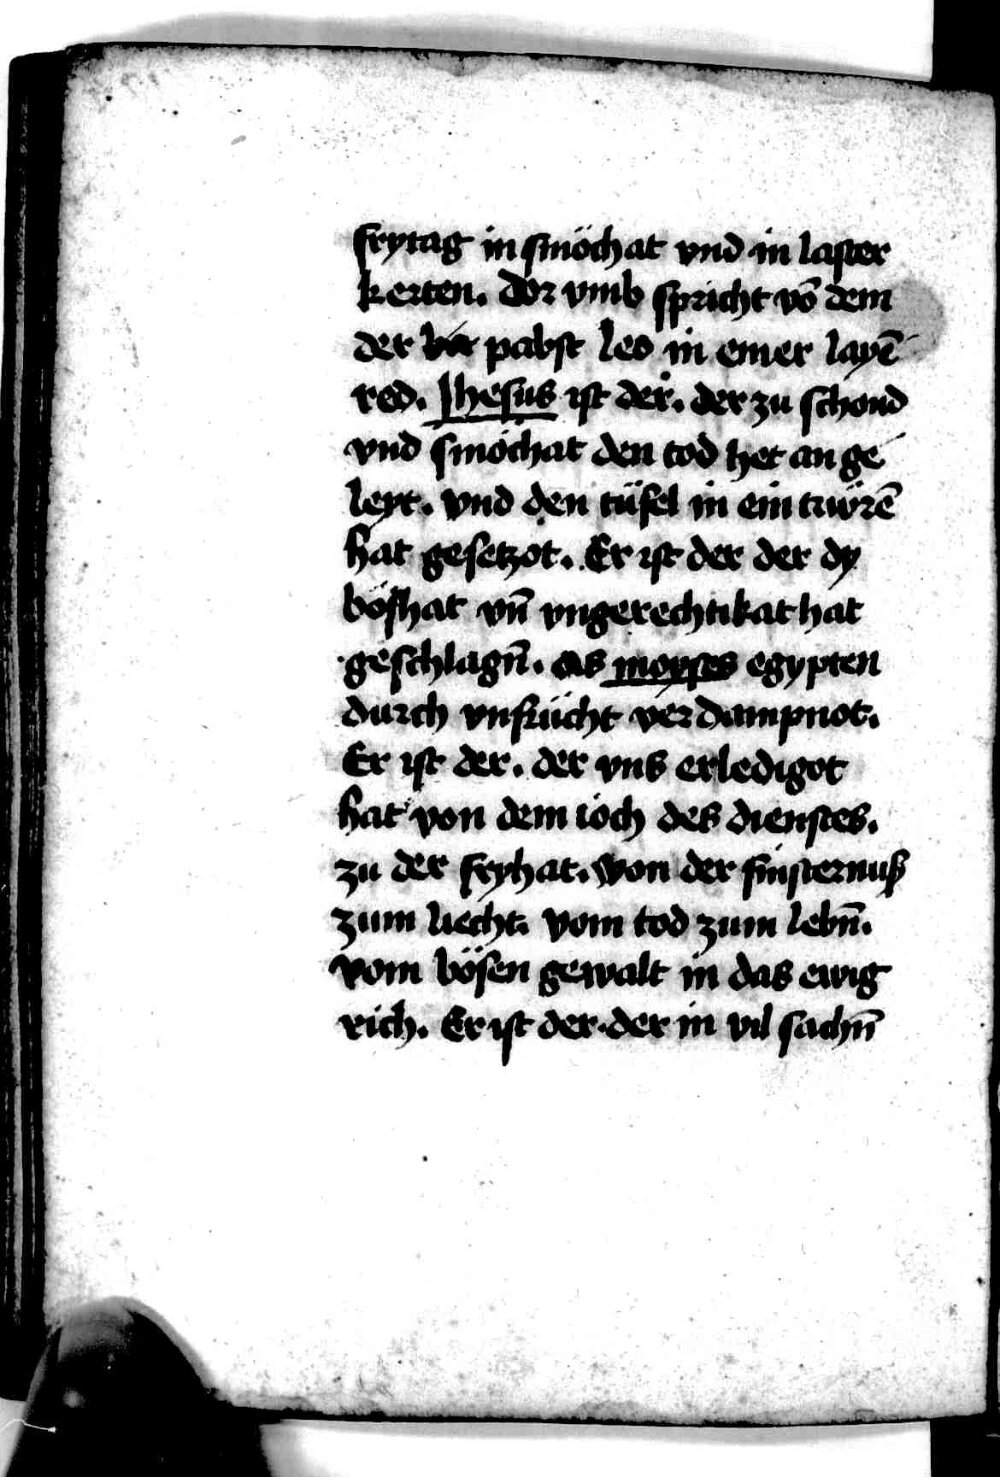 frytag in smöchat vnd in laster
kerten. Dor vmb spricht vō dem
der pabst leo in einer layē
red. Jhesus ist der. der zu schond
vnd smöchat den tod het an ge
leyt. vnd den tüfel in ein trwrē
hat gesetzot. Er ist der der dy
böshat vn̄ vngerechtikat hat
geschlagn̄. als moyses egypten
durch vnfrücht verdampnot.
Er ist der. der vns erledigot
hat von dem ioch des dienstes.
zu der fryhat. Von der finsternuß
zum liecht. vom tod zum lebn̄.
vom bösen gewalt in das ewig
rich. Er ist der. der in vil sachn̄